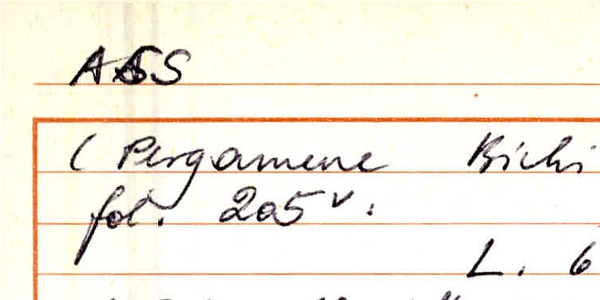 ASS
( Pergamene Bichi
fol. 205 v.
L. 6